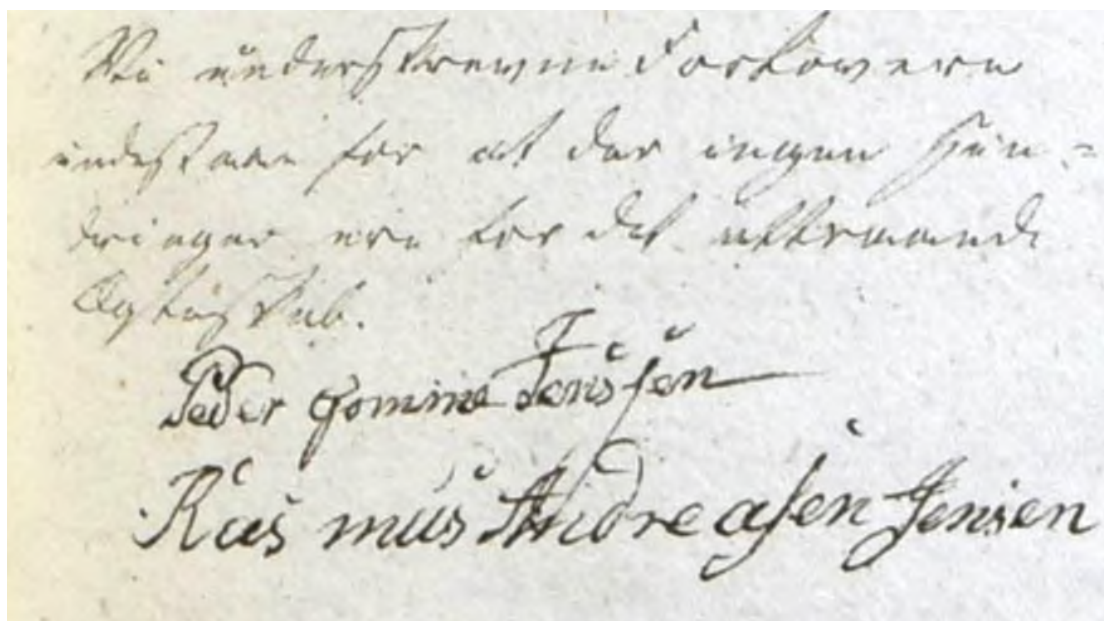 Vi underskrevne Forlovere
indestaae for at der ingen Hin=
dringer ere for det attraaede
Ægteskab.
Peder Jensen
Rasmus Andreasen Jensen